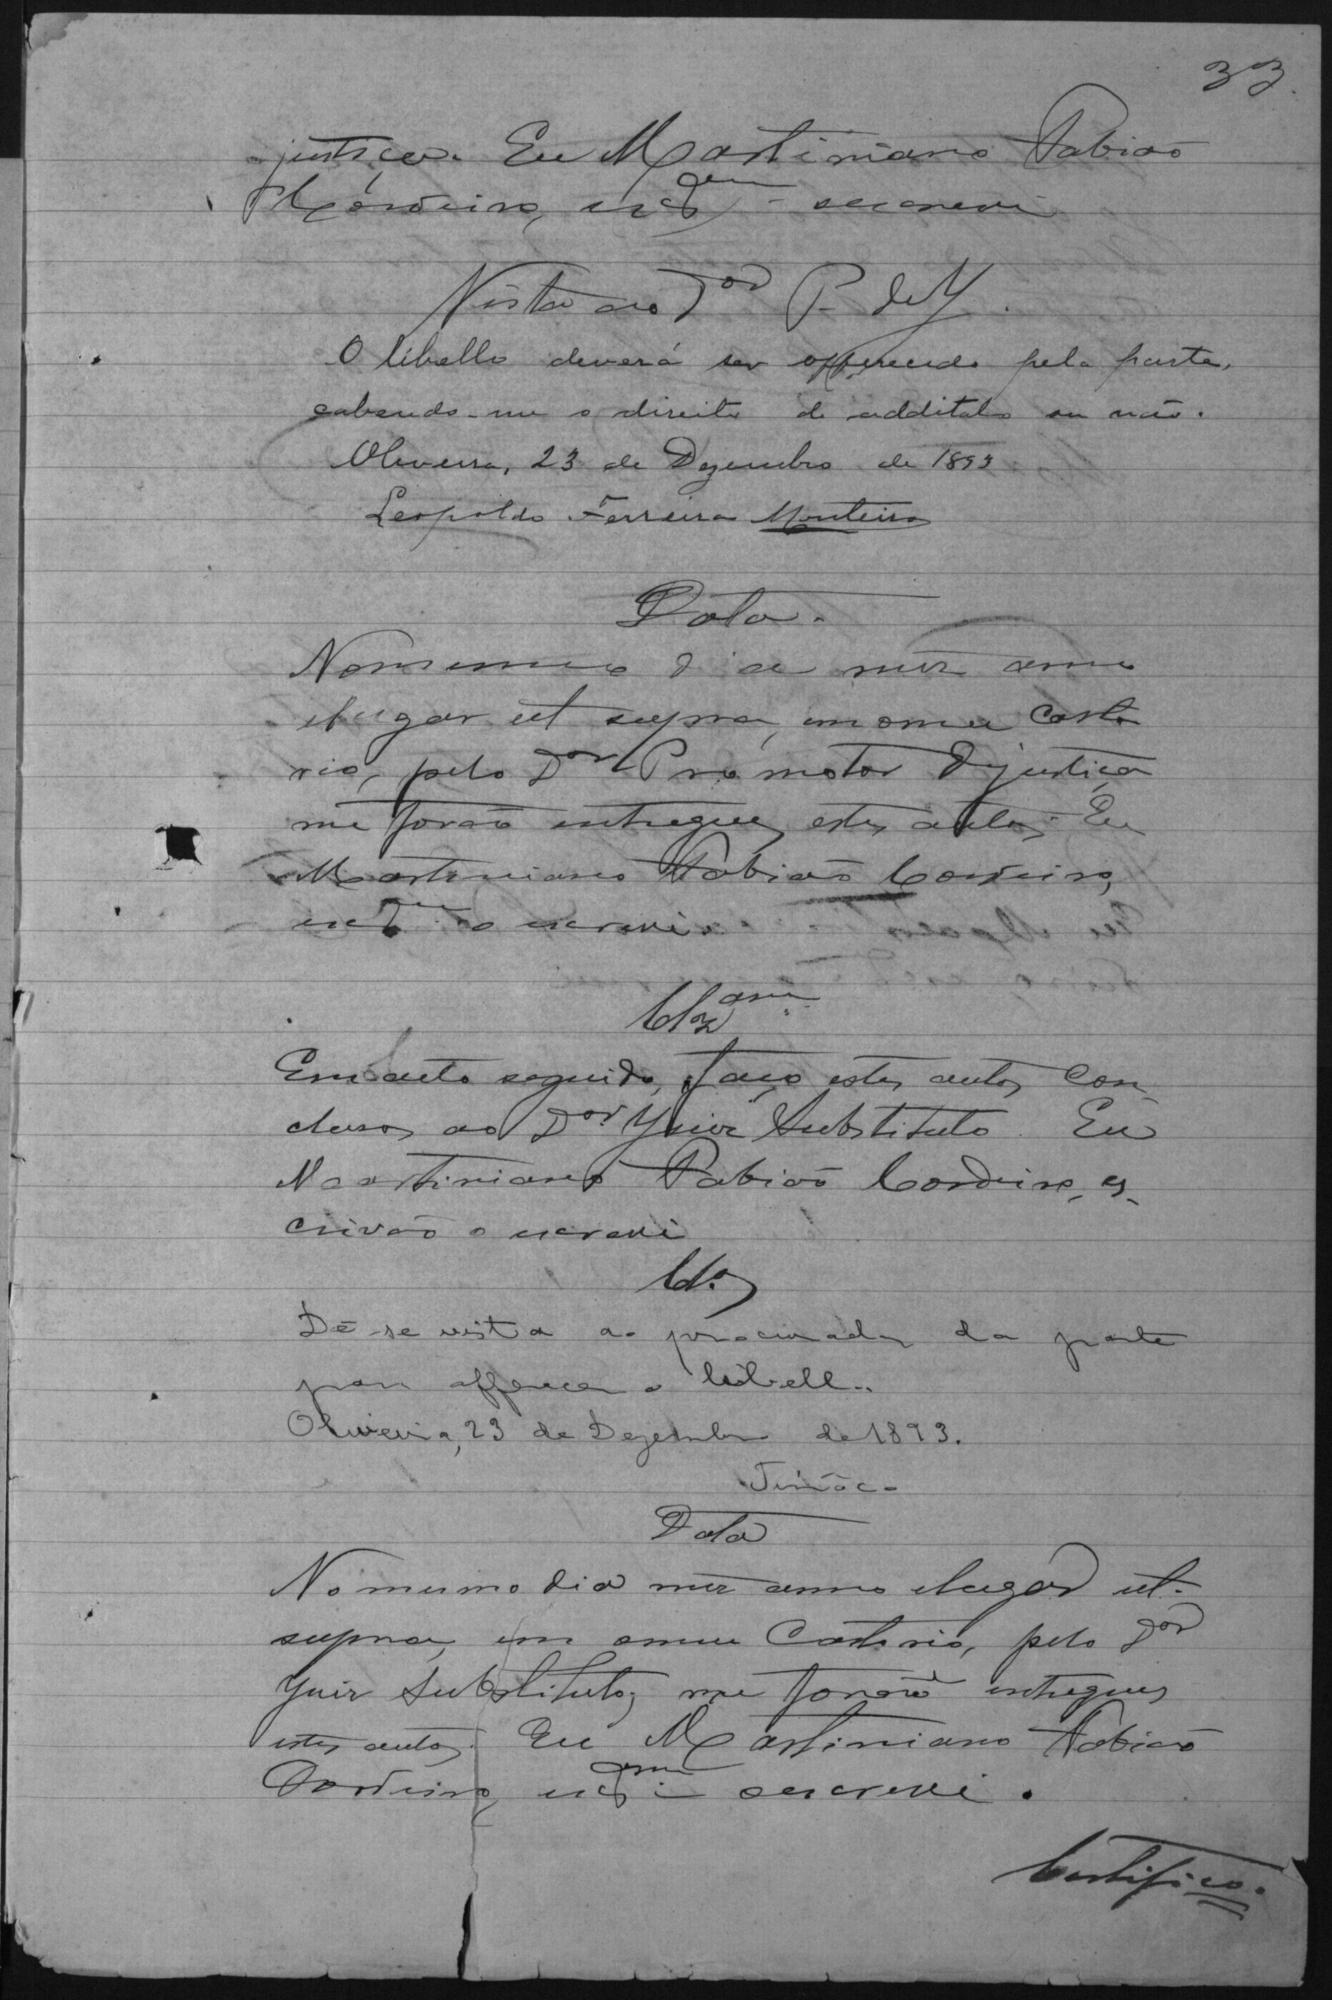 33
justiça. Eu Martiniano Fabião
Cordeiro, escam o escrevi
Vista ao Dor P. de J.
O libello deverá ser offerecido pela parte,
cabendo-me o direito de addital-o ou não.
Oliveira, 23 de Dezembro de 1893
Leopoldo Ferreira Monteiro
Data.
No mesmo dia mez anno
e lugar ut supra, em o meu Carto
rio, pelo Dor Promotor d justiça
me forão entregues estes autos. Eu
Martiniano Fabião Cordeiro,
escam o escrevi.
Clzam
Em acto seguido, faço estes autos con
clusos ao Dor Juiz Substituto. Eu
Martiniano Fabião Cordeiro, es-
crivão o escrevi
Clos
Dê-se vista ao procurador da parte
para offerecer o libello.
Oliveira, 23 de Dezembro de 1893.
Data
No mesmo dia mez anno e lugar ut
supra, em o meu Cartorio, pelo Dor
Juiz Substituto, me forão entregues
estes autos. Eu Martiniano Fabião
Cordeiro, escam o escrevi.
Certifico.